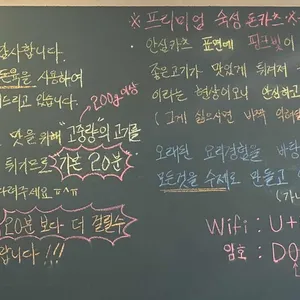 감사합니다.
돈육을 사용하여
드리고 있습니다.
200g이상
맛을 위해 "고중량"의 고기를
튀기므로 기본 20분
다려주세요 ㅠㅅㅠ
20분 보다 더 걸릴 수
랍니다!!!
※ 프리미엄 숙성 돈카츠 ※
· 안심카츠 표면에 핑크빛이
좋은고기가 맛있게 튀겨져
이라는 현상이오니 안심하고
(그게 싫으시면 바짝 익혀
오래된 요리경험을 바탕
모든것을 수제로 만들고
(가
Wifi : U+
암호 : DO